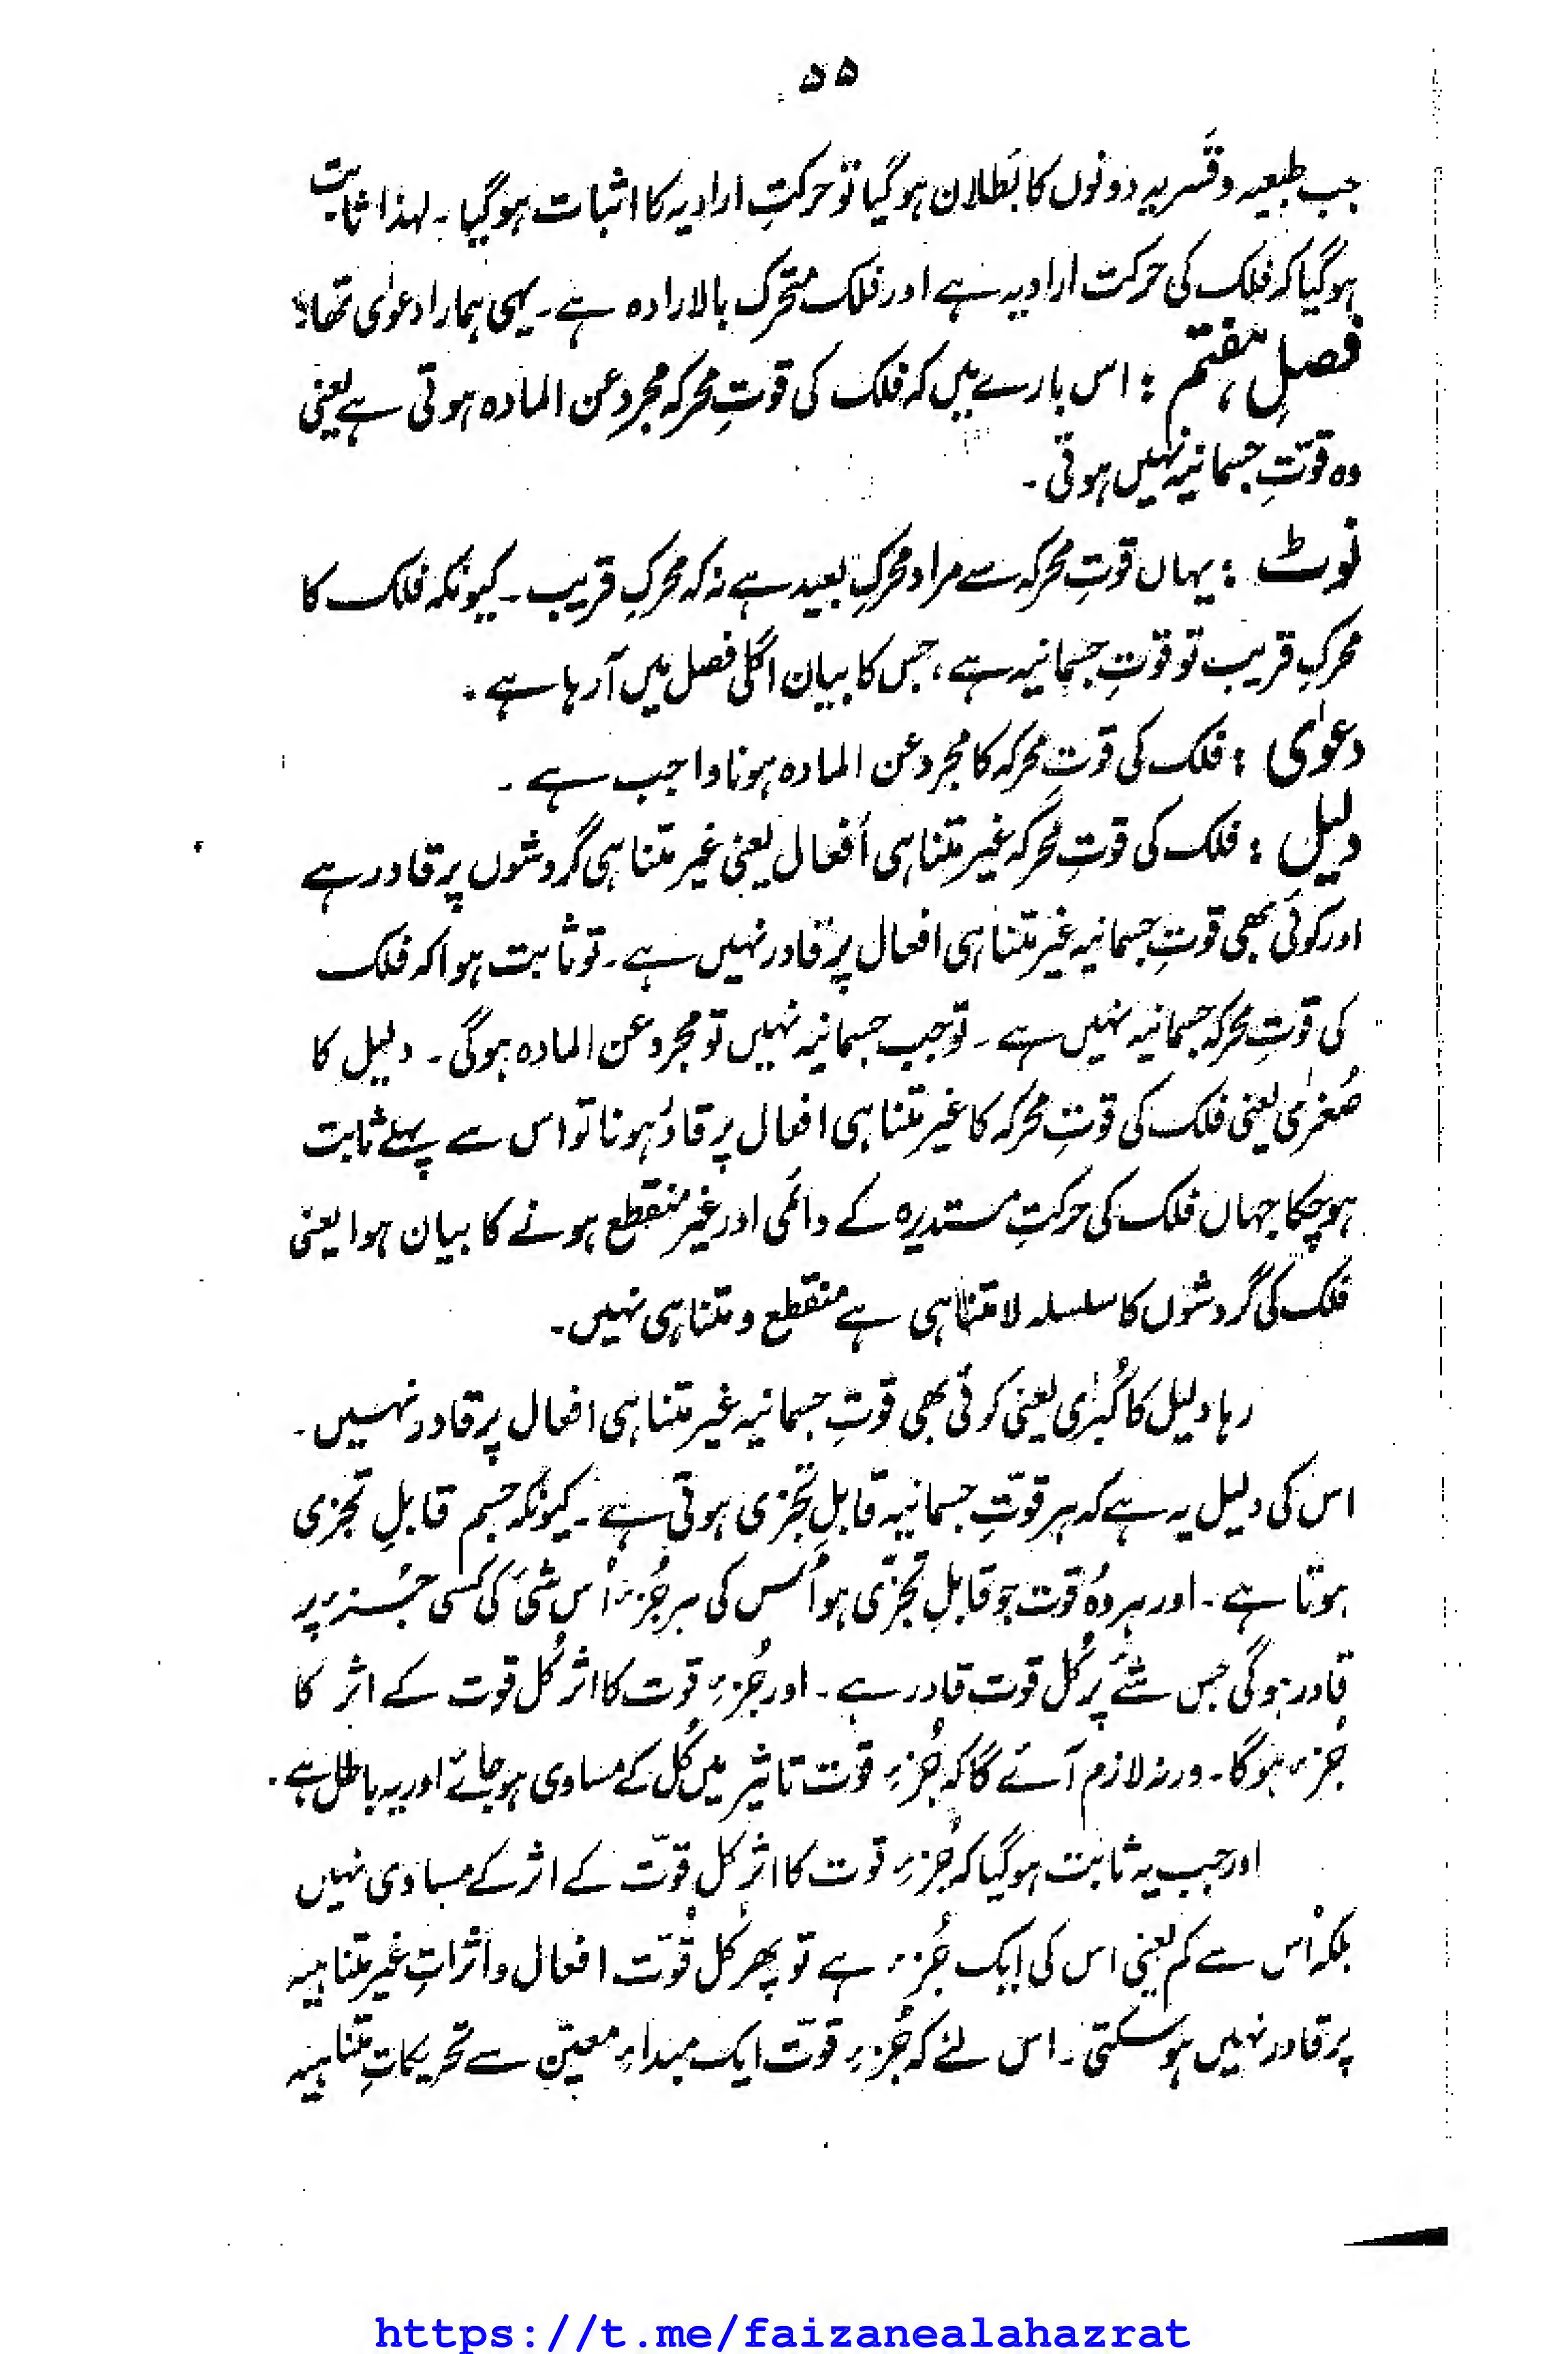 ۵۵
جب طبعیہ و قَسریہ دونوں کا بُطلان ہوگیا تو حرکتِ ارادیہ کا اثبات ہوگیا۔ لہذا ثابت
ہوگیا کہ فلک کی حرکت ارادیہ ہے اور فلک متحرک بالارادہ ہے۔ یہی ہمارا دعوٰی تھا۔
فصلِ ہفتم : اس بارے میں کہ فلک کی قوتِ محرکہ مجرد عن المادہ ہوتی ہے یعنی
وہ قوتِ جسمانیہ نہیں ہوتی۔
نوٹ : یہاں قوتِ محرکہ سے مراد محرکِ بعید ہے نہ کہ محرکِ قریب۔ کیونکہ فلک کا
محرکِ قریب تو قوتِ جسمانیہ ہے، جس کا بیان اگلی فصل میں آرہا ہے۔
دعوٰی : فلک کی قوتِ محرکہ کا مجرد عن المادہ ہونا واجب ہے۔
دلیل : فلک کی قوتِ محرکہ غیر متناہی اَفعال یعنی غیر متناہی گردشوں پر قادر ہے
اور کوئی بھی قوتِ جسمانیہ غیر متناہی افعال پر قادر نہیں ہے۔ تو ثابت ہوا کہ فلک
کی قوتِ محرکہ جسمانیہ نہیں ہے۔ تو جب جسمانیہ نہیں تو مجرد عن المادہ ہوگی۔ دلیل کا
صُغرٰی یعنی فلک کی قوتِ محرکہ کا غیر متناہی افعال پر قادر ہونا تو اس سے پہلے ثابت
ہوچکا جہاں فلک کی حرکتِ مستدیرہ کے دائمی اور غیر منقطع ہونے کا بیان ہوا یعنی
فلک کی گردشوں کا سلسلہ لامتناہی ہے منقطع و متناہی نہیں۔
رہا دلیل کا کُبرٰی یعنی کوئی بھی قوتِ جسمانیہ غیر متناہی افعال پر قادر نہیں۔
اس کی دلیل یہ ہے کہ ہر قوّتِ جسمانیہ قابلِ تجزی ہوتی ہے۔ کیونکہ جسم قابلِ تجزی
ہوتا ہے۔ اور ہر وہ قوت جو قابلِ تجزّی ہو اُس کی ہر جُزء اُس شئ کی کسی جُزء پر
قادر ہوگی جس شئے پر کُل قوت قادر ہے۔ اور جُزءِ قوت کا اثر کُل قوت کے اثر کا
جُزء ہوگا۔ ورنہ لازم آئے گا کہ جُزءِ قوت تاثیر میں کُل کے مساوی ہوجائے اور یہ باطل ہے۔
اور جب یہ ثابت ہوگیا کہ جُزءِ قوت کا اثر کل قوّت کے اثر کے مساوی نہیں
بلکہ اُس سے کم یعنی اس کی ایک جُزء ہے تو پھر کُل قوّت افعال و اثراتِ غیر متناہیہ
پر قادر نہیں ہوسکتی۔ اس لئے کہ جُزءِ قوّت ایک مبداءِ معیّن سے تحریکاتِ متناہیہ
https://t.me/faizanealahazrat